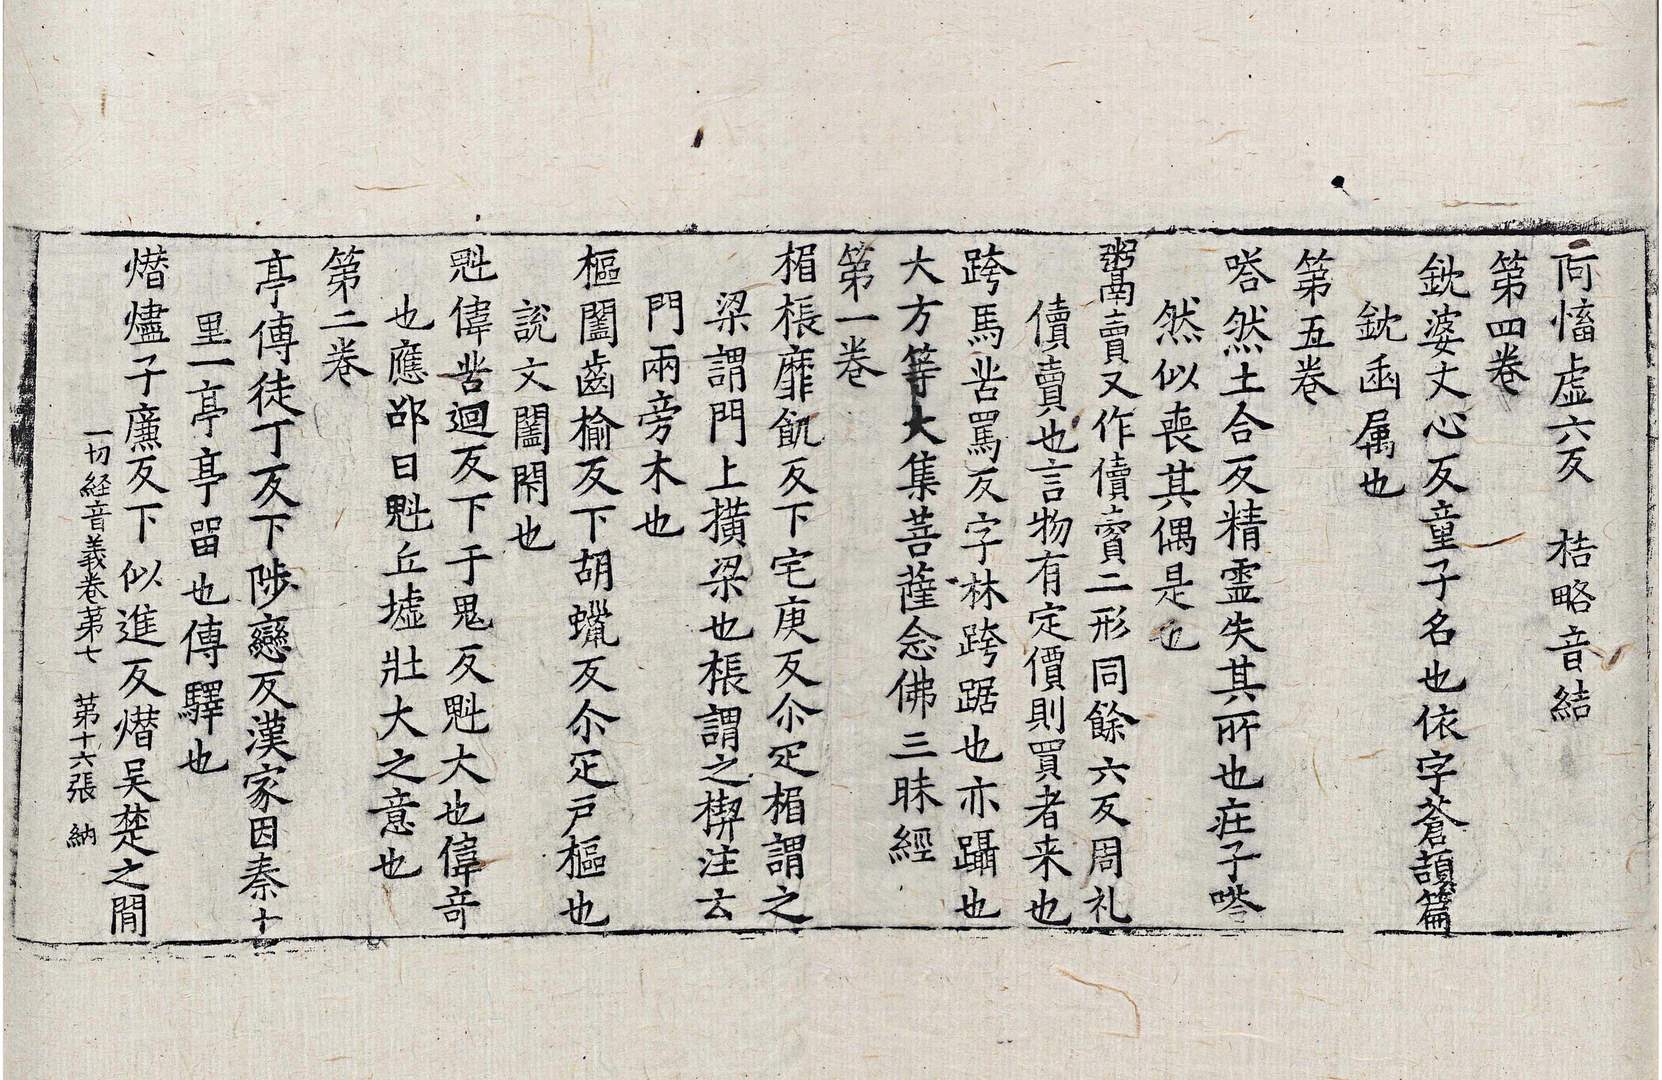 阿慉虚六反　桰略音結
第四卷
鈂婆丈心反童子名也依字蒼頡篇
鈂臿属也
第五卷
嗒然土合反精霊失其所也庄子嗒
然似喪其偶是也
鬻賣又作儥𧶠二形同餘六反周礼
儥賣也言物有定價則買者来也
跨馬苦罵反字林跨踞也亦躡也
大方等大集菩薩念佛三昧經
第一卷
楣棖靡飢反下宅庚反尒疋楣謂之
梁謂門上撗梁也棖謂之楔注云
門兩旁木也
樞闔齒榆反下胡蠟反尒疋戶樞也
說文闔閇也
魁偉苦迴反下于鬼反魁大也偉竒
也應邵曰魁丘墟壯大之意也
第二卷
亭傳徒丁反下陟戀反漢家因秦十
里一亭亭畱也傳驛也
熸燼子廉反下似進反熸吴楚之閒
一切経音義卷苐七　第十六張　納